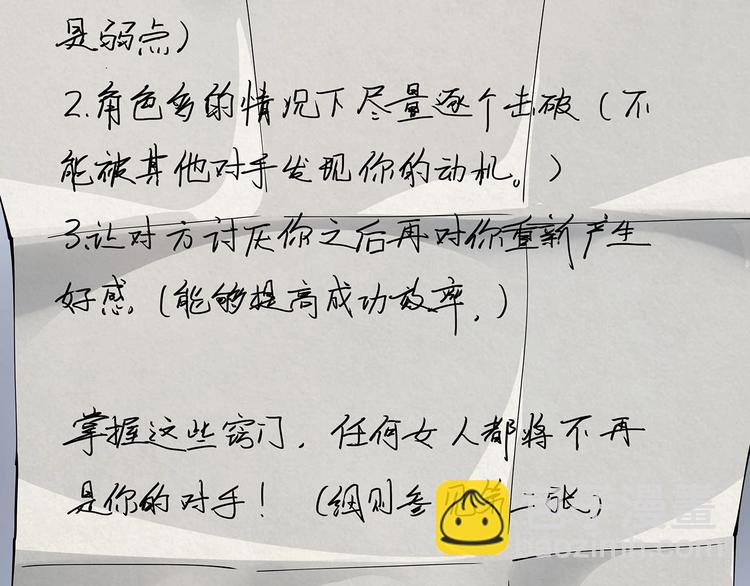 是弱点）
2.角色多的情况下尽量逐个击破（不
能被其他对手发现你的动机。）
3.让对方讨厌你之后再对你重新产生
好感。（能够提高成功效率，）
掌握这些窍门，任何女人都将不再
是你的对手！（细则参见第二张）